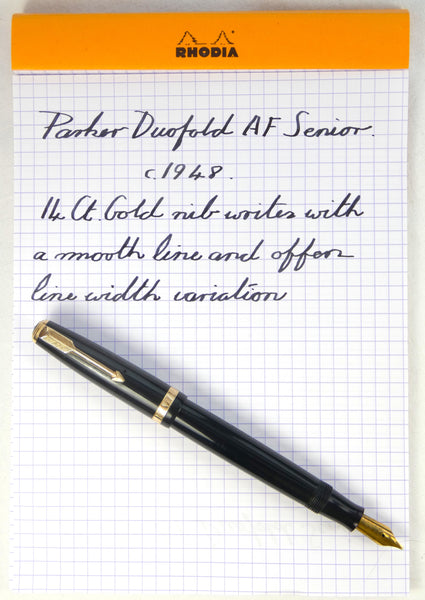 RHODIA
Parker Duofold AF Senior.
c.1948.
14 Ct. Gold nib writes with
a smooth line and offers
line width variation